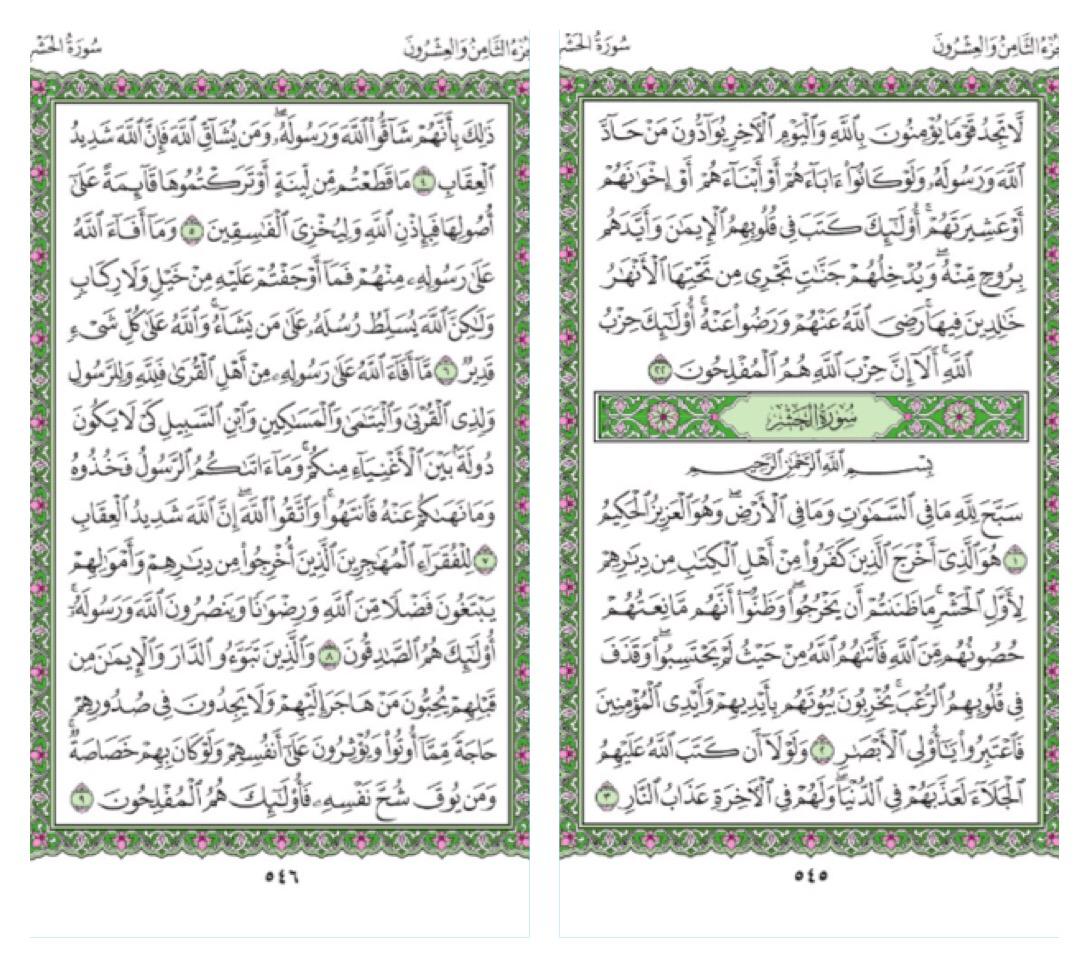 الجزء الثامن والعشرون
سورة الحشر
لَّا تَجِدُ قَوْمًا يُؤْمِنُونَ بِٱللَّهِ وَٱلْيَوْمِ ٱلْـَٔاخِرِ يُوَآدُّونَ مَنْ حَآدَّ
ٱللَّهَ وَرَسُولَهُۥ وَلَوْ كَانُوٓا۟ ءَابَآءَهُمْ أَوْ أَبْنَآءَهُمْ أَوْ إِخْوَٰنَهُمْ
أَوْ عَشِيرَتَهُمْ ۚ أُو۟لَـٰٓئِكَ كَتَبَ فِى قُلُوبِهِمُ ٱلْإِيمَـٰنَ وَأَيَّدَهُم
بِرُوحٍ مِّنْهُ ۖ وَيُدْخِلُهُمْ جَنَّـٰتٍ تَجْرِى مِن تَحْتِهَا ٱلْأَنْهَـٰرُ
خَـٰلِدِينَ فِيهَا ۚ رَضِىَ ٱللَّهُ عَنْهُمْ وَرَضُوا۟ عَنْهُ ۚ أُو۟لَـٰٓئِكَ حِزْبُ
ٱللَّهِ ۚ أَلَآ إِنَّ حِزْبَ ٱللَّهِ هُمُ ٱلْمُفْلِحُونَ ٢٢
سُورَةُ الحَشْرِ
بِسْمِ ٱللَّهِ ٱلرَّحْمَـٰنِ ٱلرَّحِيمِ
سَبَّحَ لِلَّهِ مَا فِى ٱلسَّمَـٰوَٰتِ وَمَا فِى ٱلْأَرْضِ ۖ وَهُوَ ٱلْعَزِيزُ ٱلْحَكِيمُ
١ هُوَ ٱلَّذِىٓ أَخْرَجَ ٱلَّذِينَ كَفَرُوا۟ مِنْ أَهْلِ ٱلْكِتَـٰبِ مِن دِيَـٰرِهِمْ
لِأَوَّلِ ٱلْحَشْرِ ۚ مَا ظَنَنتُمْ أَن يَخْرُجُوا۟ ۖ وَظَنُّوٓا۟ أَنَّهُم مَّانِعَتُهُمْ
حُصُونُهُم مِّنَ ٱللَّهِ فَأَتَىٰهُمُ ٱللَّهُ مِنْ حَيْثُ لَمْ يَحْتَسِبُوا۟ ۖ وَقَذَفَ
فِى قُلُوبِهِمُ ٱلرُّعْبَ ۚ يُخْرِبُونَ بُيُوتَهُم بِأَيْدِيهِمْ وَأَيْدِى ٱلْمُؤْمِنِينَ
فَٱعْتَبِرُوا۟ يَـٰٓأُو۟لِى ٱلْأَبْصَـٰرِ ٢ وَلَوْلَآ أَن كَتَبَ ٱللَّهُ عَلَيْهِمُ
ٱلْجَلَآءَ لَعَذَّبَهُمْ فِى ٱلدُّنْيَا ۖ وَلَهُمْ فِى ٱلْـَٔاخِرَةِ عَذَابُ ٱلنَّارِ ٣
٥٤٥
الجزء الثامن والعشرون
سورة الحشر
ذَٰلِكَ بِأَنَّهُمْ شَآقُّوا۟ ٱللَّهَ وَرَسُولَهُۥ ۖ وَمَن يُشَآقِّ ٱللَّهَ فَإِنَّ ٱللَّهَ شَدِيدُ
ٱلْعِقَابِ ٤ مَا قَطَعْتُم مِّن لِّينَةٍ أَوْ تَرَكْتُمُوهَا قَآئِمَةً عَلَىٰٓ
أُصُولِهَا فَبِإِذْنِ ٱللَّهِ وَلِيُخْزِىَ ٱلْفَـٰسِقِينَ ٥ وَمَآ أَفَآءَ ٱللَّهُ
عَلَىٰ رَسُولِهِۦ مِنْهُمْ فَمَآ أَوْجَفْتُمْ عَلَيْهِ مِنْ خَيْلٍ وَلَا رِكَابٍ
وَلَـٰكِنَّ ٱللَّهَ يُسَلِّطُ رُسُلَهُۥ عَلَىٰ مَن يَشَآءُ ۚ وَٱللَّهُ عَلَىٰ كُلِّ شَىْءٍ
قَدِيرٌ ٦ مَّآ أَفَآءَ ٱللَّهُ عَلَىٰ رَسُولِهِۦ مِنْ أَهْلِ ٱلْقُرَىٰ فَلِلَّهِ وَلِلرَّسُولِ
وَلِذِى ٱلْقُرْبَىٰ وَٱلْيَتَـٰمَىٰ وَٱلْمَسَـٰكِينِ وَٱبْنِ ٱلسَّبِيلِ كَىْ لَا يَكُونَ
دُولَةًۢ بَيْنَ ٱلْأَغْنِيَآءِ مِنكُمْ ۚ وَمَآ ءَاتَىٰكُمُ ٱلرَّسُولُ فَخُذُوهُ
وَمَا نَهَىٰكُمْ عَنْهُ فَٱنتَهُوا۟ ۚ وَٱتَّقُوا۟ ٱللَّهَ ۖ إِنَّ ٱللَّهَ شَدِيدُ ٱلْعِقَابِ
٧ لِلْفُقَرَآءِ ٱلْمُهَـٰجِرِينَ ٱلَّذِينَ أُخْرِجُوا۟ مِن دِيَـٰرِهِمْ وَأَمْوَٰلِهِمْ
يَبْتَغُونَ فَضْلًا مِّنَ ٱللَّهِ وَرِضْوَٰنًا وَيَنصُرُونَ ٱللَّهَ وَرَسُولَهُۥٓ ۚ
أُو۟لَـٰٓئِكَ هُمُ ٱلصَّـٰدِقُونَ ٨ وَٱلَّذِينَ تَبَوَّءُو ٱلدَّارَ وَٱلْإِيمَـٰنَ مِن
قَبْلِهِمْ يُحِبُّونَ مَنْ هَاجَرَ إِلَيْهِمْ وَلَا يَجِدُونَ فِى صُدُورِهِمْ
حَاجَةً مِّمَّآ أُوتُوا۟ وَيُؤْثِرُونَ عَلَىٰٓ أَنفُسِهِمْ وَلَوْ كَانَ بِهِمْ خَصَاصَةٌ ۚ
وَمَن يُوقَ شُحَّ نَفْسِهِۦ فَأُو۟لَـٰٓئِكَ هُمُ ٱلْمُفْلِحُونَ ٩
٥٤٦